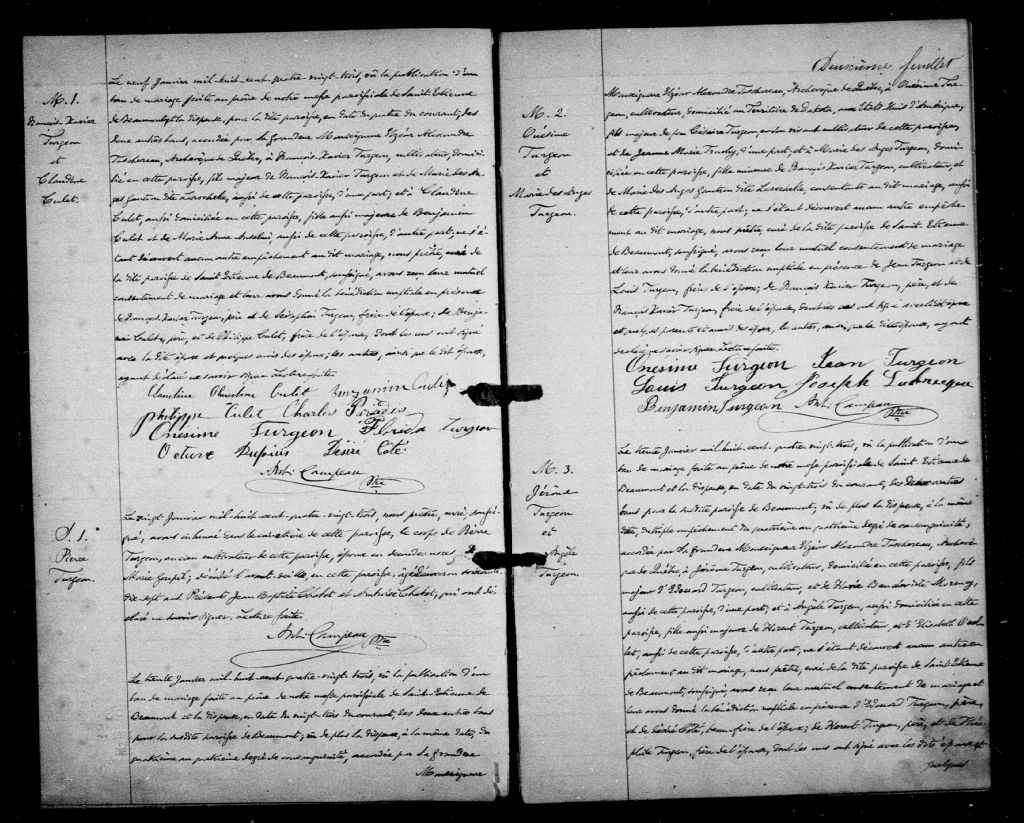 M. 1.
François-Xavier
Turgeon
et
Claudine
Culet.
Le neuf Janvier mil-huit-cent-quatre-vingt-trois, vû la publication d'un
ban de mariage faite au prône de notre messe paroissiale de Saint-Etienne
de Beaumont, et la dispense, pour la dite paroisse, en date du quatre du courant, des
deux autres bans, accordée par sa Grandeur Monseigneur Elzéar Alexandre
Taschereau, Archevêque de Québec, à François-Xavier Turgeon, cultivateur, domici-
lié en cette paroisse, fils majeur de François-Xavier Turgeon et de Marie des An-
ges Gautron dite Larochelle, aussi de cette paroisse, d'une part; et à Claudine
Culet, aussi domiciliée en cette paroisse, fille aussi majeure de Benjamin
Culet et de Marie Anne aussi de cette paroisse, d'autre part; ne s'é-
tant découvert aucun autre empêchement au dit mariage, nous prêtre, curé de
la dite paroisse de Saint-Etienne de Beaumont, soussigné, avons reçu leur mutuel
consentement de mariage et leur avons donné la bénédiction nuptiale en présence
de François-Xavier Turgeon, père et de Séraphin Turgeon, frère de l'époux; de Benja-
min Culet, père, et de Philippe Culet, frère de l'épouse, dont les uns ont signé
avec la dite épouse et quelques amis des époux; les autres, ainsi que le dit époux,
ayant déclaré ne savoir signer. Lecture faite.
Claudine Culet Benjamin Culet
Philippe Culet Charles Paradis
Onésime Turgeon Florida Turgeon
Octave Désiré Coté
Ant: Campeau
Ptre
S. 1.
Pierre
Turgeon.
Le vingt Janvier mil-huit-cent-quatre-vingt-trois, nous prêtre, curé soussi-
gné, avons inhumé dans le cimetière de cette paroisse, le corps de Pierre
Turgeon, ancien cultivateur de cette paroisse, époux en secondes noces, de
Marie Goupil; décédé l'avant-veille, en cette paroisse, âgé d'environ soixante-
dix-sept ans. Présents Jean Baptiste Chabot et Ambroise Chabot, qui ont dé-
claré ne savoir signer. Lecture faite.
Ant: Campeau
Ptre
Le trente Janvier mil-huit-cent-quatre-vingt-trois, vû la publication d'un
ban de mariage faite au prône de notre messe paroissiale de Saint-Etienne de
Beaumont et la dispense, en date du vingt-trois du courant, des deux autres bans
pour la susdite paroisse de Beaumont; vû de plus la dispense, à la même date, du
quatrième au quatrième degré de consanguinité, accordée par Sa Grandeur
Monseigneur
Deuxième feuillet
M. 2.
Onésime
Turgeon
et
Marie des Anges
Turgeon.
Monseigneur Elzéar Alexandre Taschereau, Archevêque de Québec, à Onésime Tur-
geon, cultivateur, domicilié au Territoire de Dakota, aux Etats-Unis d'Amérique,
fils majeur de feu Césaire Turgeon, en son vivant cultivateur de cette paroisse,
et de Jeanne Marie d'une part; et à Marie des Anges Turgeon, domi-
ciliée en cette paroisse, fille mineure de François Xavier Turgeon, cultivateur, et
de Marie des Anges Gautron dite Larochelle, consentants au dit mariage, aussi
de cette paroisse, d'autre part; ne s'étant découvert aucun autre empêche-
ment au dit mariage, nous prêtre, curé de la dite paroisse de Saint-Etienne
de Beaumont, soussigné, avons reçu leur mutuel consentement de mariage
et leur avons donné la bénédiction nuptiale en présence de Jean Turgeon et de
Louis Turgeon, frère de l'époux; de François Xavier Turgeon, père, et de
François Xavier Turgeon, frère de l'épouse, dont les uns ont signé avec le dit époux
et parents et amis des époux, les autres, ainsi que la dite épouse, ayant
déclaré ne savoir signer. Lecture faite.
Onésime Turgeon Jean Turgeon
Louis Turgeon Joseph Labrecque
Benjamin Turgeon Ant: Campeau
Ptre
M. 3.
Jérôme
Turgeon
et
Angèle
Turgeon.
Le trente Janvier mil-huit-cent-quatre-vingt-trois, vû la publication d'un
ban de mariage faite au prône de notre messe paroissiale de Saint-Etienne de
Beaumont et la dispense, en date du vingt-trois du courant, des deux autres
bans pour la susdite paroisse de Beaumont; vû de plus la dispense, à la même
date, du triple empêchement du quatrième au quatrième degré de consanguinité,
accordée par Sa Grandeur Monseigneur Elzéar Alexandre Taschereau, Archevê-
que de Québec, à Jérôme Turgeon, cultivateur, domicilié en cette paroisse, fils
majeur d'Edouard Turgeon, cultivateur, et de Marie
aussi de cette paroisse, d'une part; et à Angèle Turgeon, aussi domiciliée en cette
paroisse, fille aussi majeure de Florent Turgeon, cultivateur, et d'Elisabeth
aussi de cette paroisse, d'autre part; ne s'étant découvert aucun autre em-
pêchement au dit mariage, nous prêtre, curé de la dite paroisse de Saint-Etienne
de Beaumont, soussigné, avons reçu leur mutuel consentement de mariage et
leur avons donné la bénédiction nuptiale en présence d'Edouard Turgeon, père,
et de Désiré Coté, beau-frère de l'époux; de Florent Turgeon, père, et de Théo-
phile Turgeon, frère de l'épouse, dont les uns ont signé avec les dits époux et
quelques